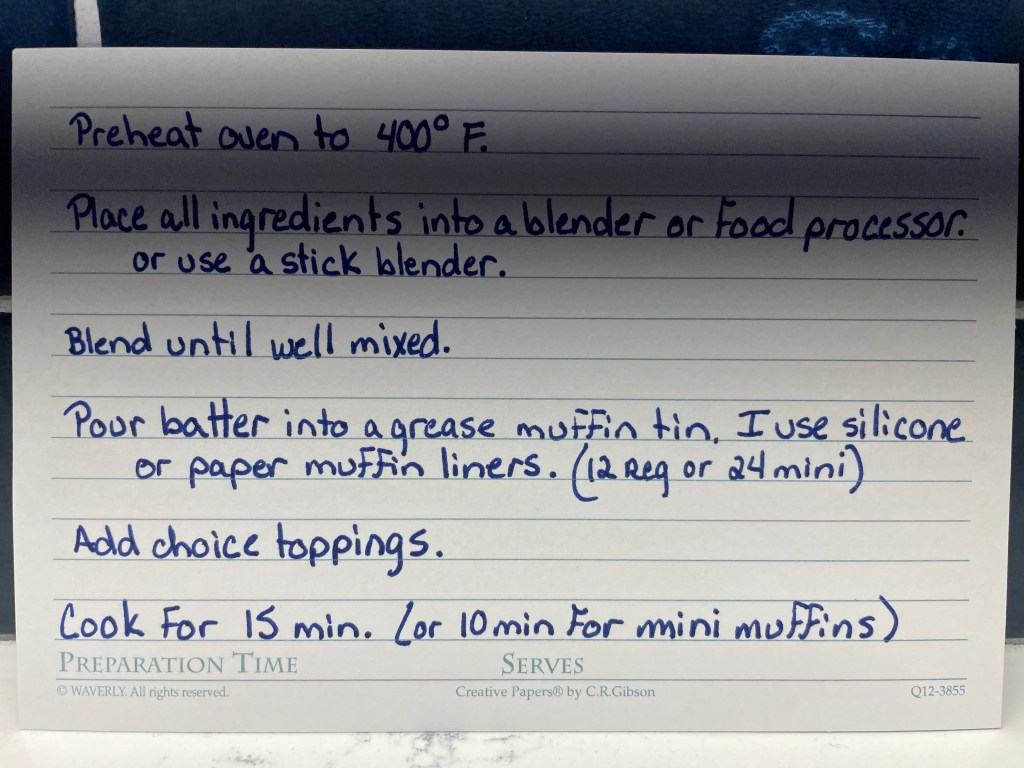 Preheat oven to 400° F.
Place all ingredients into a blender or Food processor.
or use a stick blender.
Blend until well mixed.
Pour batter into a grease muffin tin. I use silicone
or paper muffin liners. (12 Reg or 24 mini)
Add choice toppings.
Cook For 15 min. (or 10 min For mini muffins)
PREPARATION TIME SERVES
© WAVERLY. All rights reserved. Creative Papers® by C.R.Gibson Q12-3855